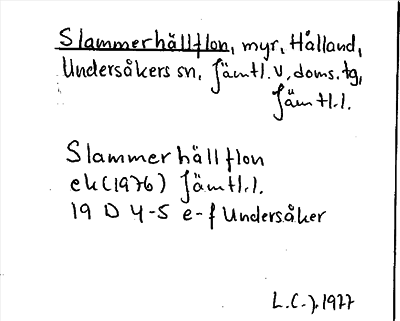 Slammerhällflon, myr, Hålland,
Undersåkers sn, Jämtl. V, doms. tg,
Jämtl.l.
Slammerhällflon
ek(1976) Jämtl.l.
19 D 4-5 e-f Undersåker
L.C.J. 1977